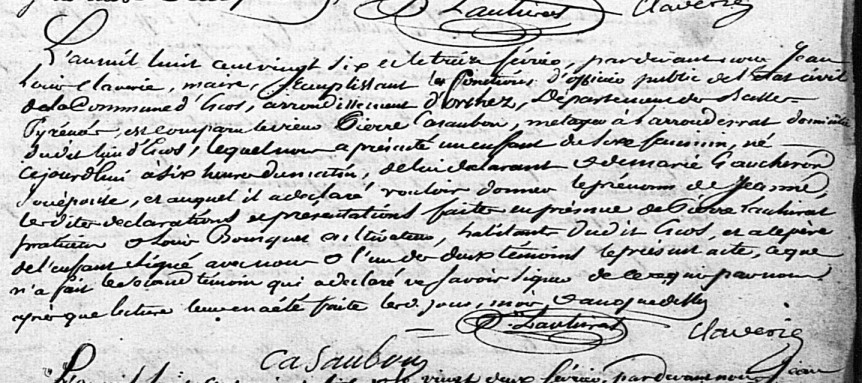 Lauhirat Claverie
L'an mil huit cent vingt six et le treize février, par devant nous Jean
Louis Claverie, maire, remplissant les fonctions d'officier public de l'Etat civil
de la Commune d'Escos, arrondissement d'Orthez, Département des Basses=
Pyrénées, est comparu le sieur Pierre Casaubon, métayer à domicilié
dudit lieu d'Escos, lequel nous a présenté un enfant du sexe féminin, né
cejourd'hui à six heures du matin, de lui déclarant et de marie Gaucheron
son épouse, et auquel il a déclaré vouloir donner le prénom de Jeanne,
lesdites déclarations et présentations faites en présence de Pierre Lauhirat
et Louis Bousquet cultivateur, habitants dudit Escos, et a le père
de l'enfant signé avec nous et l'un des deux témoins le présent acte, ce que
n'a fait le second témoin qui a déclaré ne savoir signer de ce requis par nous
après que lecture leur en a été faite les d. jour, mois et an que dessus
Lauhirat Claverie
Casaubon
L'an mil huit cent vingt six et le vingt deux février, par devant nous Jean